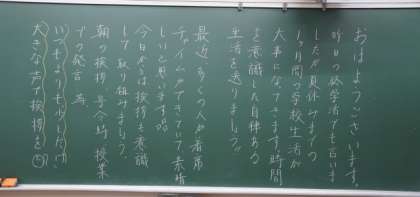 おはようございます。
昨日の終学活でも言いま
したが夏休みまでの
1ヶ月間の学校生活が
大事になってきます。時間
を意識した自律ある
生活を送りましょう!!
最近、多くの人が着席
チャイムができていて素晴
しいと思います。
今日からは挨拶も意識
して取り組みましょう。
朝の挨拶、号令時、授業
での発言等、
いつもよりも少しだけ
大きな声で挨拶を